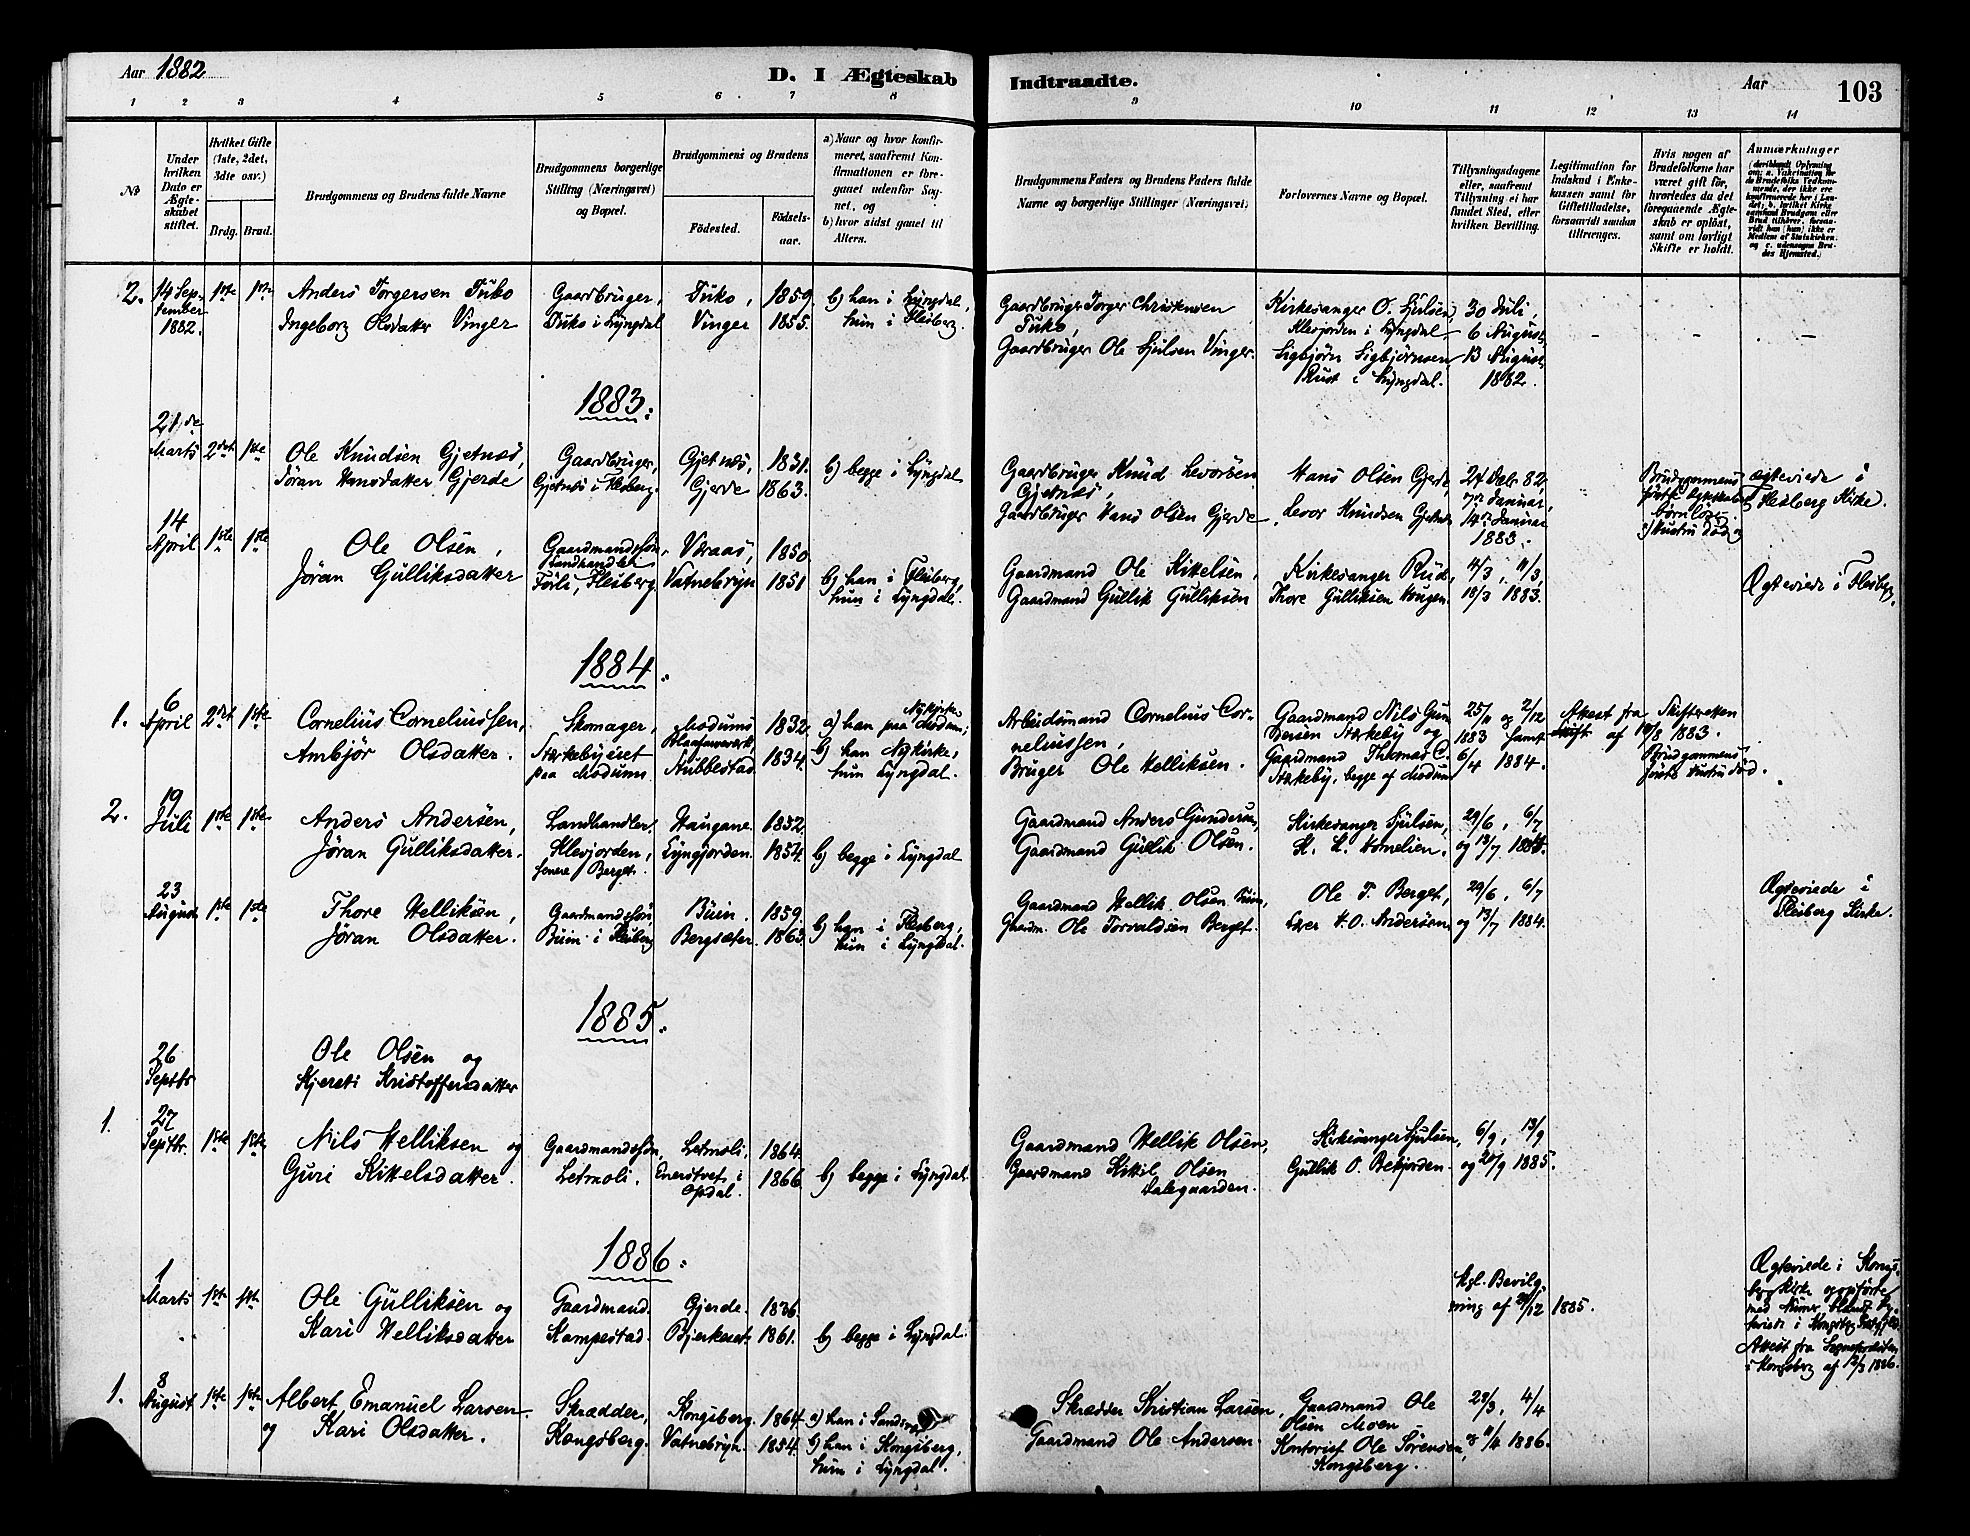 Aar 1882
D. I Ægteskab Indtraadte.
Aar
103
1 2 3 4 5 6 7 8 9 10 11 12 13 14
No
Under hvilken Dato er Ægteskabet stiftet.
Hvilket Gifte (1ste, 2det, 3dte osv.)
Brdg. Brud.
Brudgommens og Brudens fulde Navne
Brudgommens borgerlige Stilling (Næringsvei) og Bopæl.
Brudgommens og Brudens
Födested. Födsels-aar.
a) Naar og hvor konfirmeret, saafremt Konfirmationen er foregaaet udenfor Sognet, og
b) hvor sidst gaaet til Alters.
Brudgommens Faders og Brudens Faders fulde Navne og borgerlige Stillinger (Næringsvei)
Forlovernes Navne og Bopæl.
Tillysningsdagene eller, saafremt Tillysning ei har fundet Sted, efter hvilken Bevilling.
Legitimation for Indskud i Enkekassen samt for Giftetilladelse, forsaavidt saadan tiltrænges.
Hvis nogen af Brudefolkene har været gift för, hvorledes da det foregaaende Ægteskab er oplöst, samt om lovligt Skifte er holdt.
Anmærkninger
2. 14 September 1882. 1ste 1ste
Anders Torgersen Tuko
Ingeborg Olsdatter Vinger
Gaardbruger, Tuko i Lyngdal
Tuko, 1859.
Vinger 1855.
b) han i Lyngdal, hun i Flesberg.
Gaardbruger Torger Christensen Tuko,
Gaardbruger Ole Sjulsen Vinger.
Kirkesanger O. Sjulsen, Klevjorden i Lyngdal,
Sigbjørn Sigbjørnsen, Rust i Lyngdal.
30 Juli, 6 August, 13 August 1882.
- - -
1883.
21de Marts 2det 1ste
Ole Knudsen Gjetnæs,
Jøran Hansdatter Gjerde
Gaardbruger, Gjetnæs i Flesberg.
Gjetnæs, 1831.
Gjerde 1863.
b) begge i Lyngdal
Gaardbruger Knud Levorsen Gjetnæs,
Gaardbruger Hans Olsen Gjerde,
Hans Olsen Gjerde,
Levor Knudsen Gjetnæs
7de Januar, 14de Januar 1883.
Brudgommens første Ægteskab børnløst, Hustru død
ægteviede i Flesberg Kirke.
14 April 1ste 1ste
Ole Olsen,
Jøran Gulliksdatter
Gaardmandssøn, Landhandler Førli, Flesberg.
Væraas, 1850.
Vatnebryn 1851
b) han i Flesberg, hun i Lyngdal.
Gaardmand Ole Kittelsen,
Gaardmand Gullik Gulliksen
Kirkesanger Rud,
Thore Gulliksen Hougen.
4/3, 11/3, 18/3 1883.
Ægteviede i Flesberg.
1884.
1. 6 April 2det 1ste
Cornelius Corneliussen,
Ambjør Olsdatter.
Skomager, Stærkebyeiet paa Modum
Modums Blaafarveværk 1832.
Stubbestad 1834.
a) han paa Modum, Nykirke;
b) han Nykirke, hun Lyngdal.
Arbeidsmand Cornelius Corneliussen,
Bruger Ole Helliksen.
Gaardmand Nils Gundersen Stærkeby og
Gaardmand Thomas C. Stærkeby, begge af Modum
25/11 og 2/12 1883 samt 6/4 1884.
Attest fra Skifteretten af 10/8 1883.
Brudgommens første Hustru død.
2. 19 Juli 1ste 1ste
Anders Andersen,
Jøran Gulliksdatter.
Landhandler, Klevjorden, senere Berget.
Haugane. 1852.
Lyngjorden. 1854.
b) begge i Lyngdal
Gaardmand Anders Gundersen,
Gaardmand Gullik Olsen.
Kirkesanger Sjulsen,
K. K. Homelien.
29/6, 6/7 og 13/7 1884.
23 August 1ste 1ste
Thore Helliksen,
Jøran Olsdatter.
Gaardmandssøn, Buin i Flesberg
Buin. 1859.
Bergsæter. 1863.
b) han i Flesberg, hun i Lyngdal.
Gaardmand Hellik Olsen Buin,
Gaardm. Ole Torvaldsen Berget.
Ole T. Berget,
H. O. Andersen
29/6, 6/7 og 13/7 1884.
Ægteviede i Flesberg Kirke.
1885.
26 Septbr
Ole Olsen og
Kjersti Kristoffersdatter
1. 27 Septbr. 1ste 1ste
Nils Helliksen og
Guri Kittelsdatter.
Gaardmandssøn, Letmoli.
Letmoli, 1864.
Enerstvet i Opdal. 1866
b) begge i Lyngdal.
Gaardmand Hellik Olsen,
Gaardmand Kittil Olsen Dalegaarden.
Kirkesanger Sjulsen,
Gullik O. Bekjorden.
6/9, 13/9 og 20/9 1885.
1886.
1 Marts 1ste 1ste
Ole Gulliksen og
Kari Helliksdatter
Gaardmand. Kampestad.
Gjerde. 1836.
Bjerkeset. 1861.
b) begge i Lyngdal.
Kgl. Bevilgning af 24/12 1885.
Ægteviede i Kongsberg Kirke
1. 8 August 1ste 1ste
Albert Emanuel Larsen
og Kari Olsdatter.
Skrædder, Kongsberg.
Kongsberg. 1864.
Vatnebryn. 1854.
a) han i Sandsvær
b) han i Kongsberg, hun i Lyngdal.
Skrædder Kristian Larsen,
Gaardmand Ole Andersen.
Gaardmand Ole Olsen Moen
Kontorist Ole Sørensen, Kongsberg.
28/3, 4/4 og 11/4 1886.